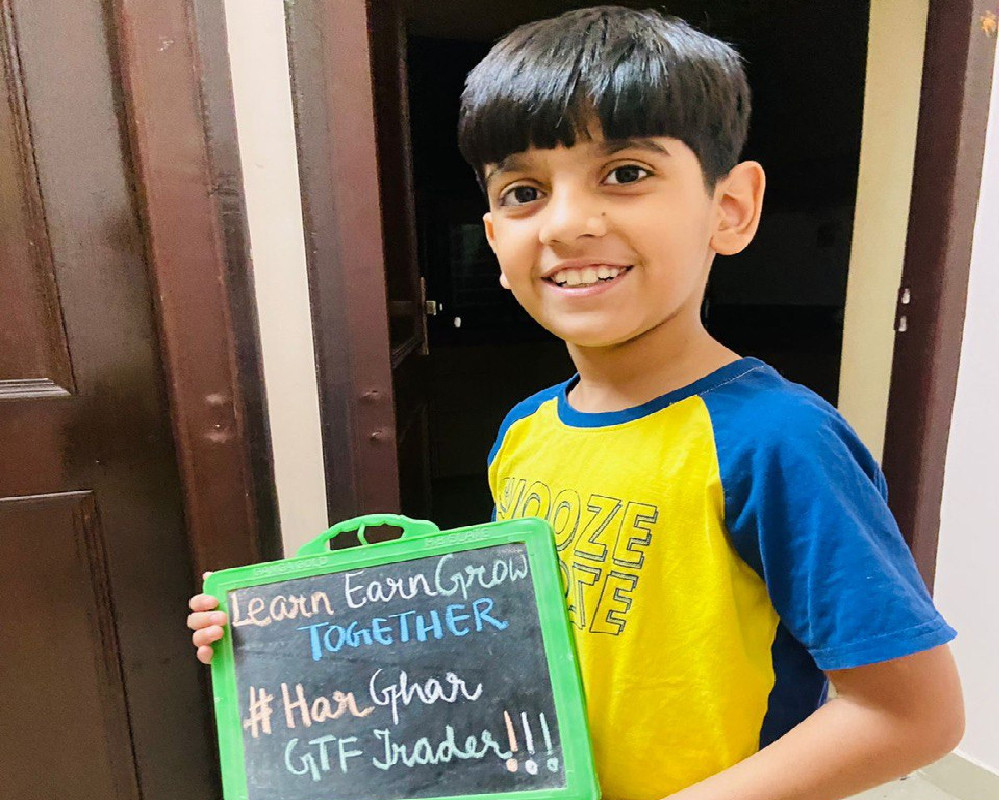 Learn Earn Grow
TOGETHER
#Har Ghar
GTF Trader!!!